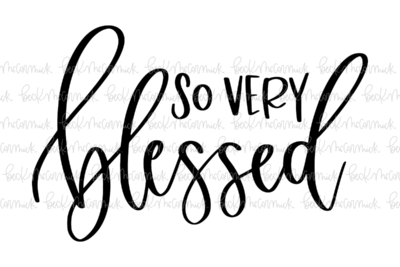 SO VERY
blessed